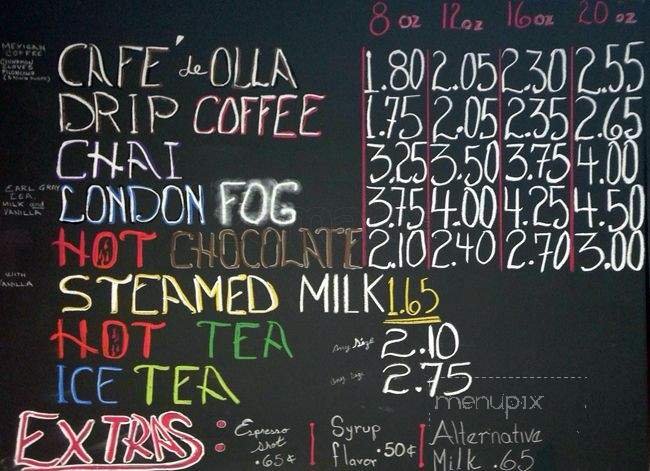 8 oz 12 oz 16 oz 20 oz
MEXICAN
COFFEE
CINNAMON
CLOVES
PILONCILLO
(BROWN SUGAR)
CAFÉ de OLLA 1.80 2.05 2.30 2.55
DRIP COFFEE 1.75 2.05 2.35 2.65
CHAI 3.25 3.50 3.75 4.00
EARL GRAY
TEA,
MILK and
VANILLA
LONDON FOG 3.75 4.00 4.25 4.50
HOT CHOCOLATE 2.10 2.40 2.70 3.00
WITH
VANILLA
STEAMED MILK 1.65
HOT TEA any size 2.10
ICE TEA any size 2.75
menupix
EXTRAS: Espresso
shot
.65¢
Syrup
flavor .50¢
Alternative
Milk .65